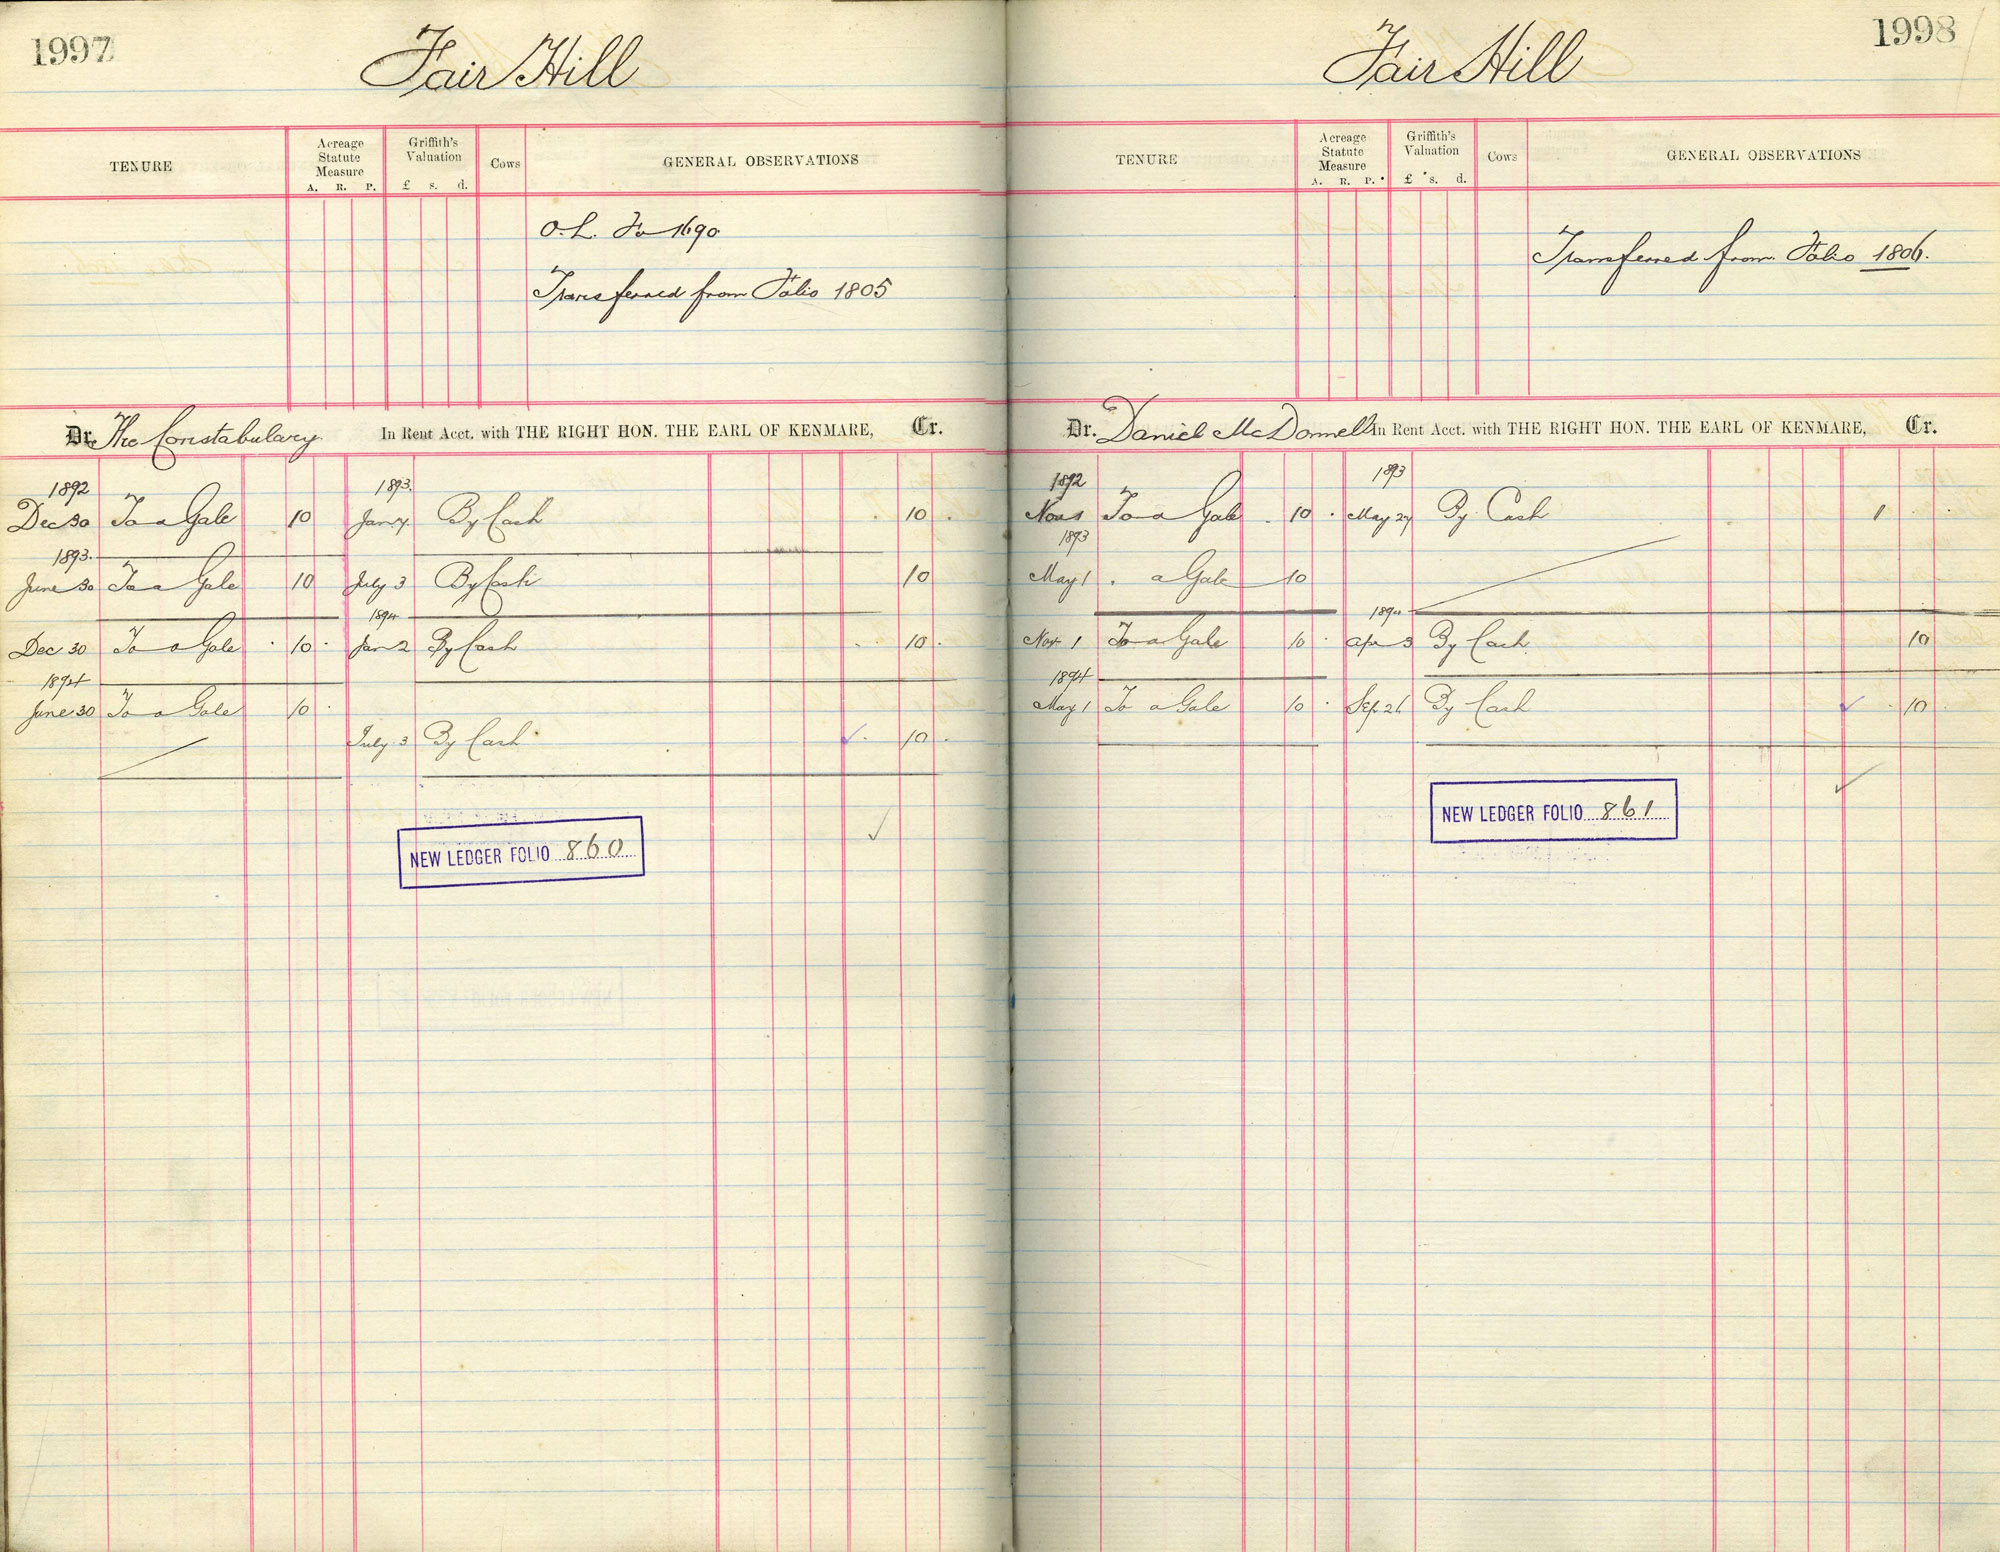 1997
Fair Hill
TENURE
Acreage Statute Measure
A. R. P.
Griffith's Valuation
£ s. d.
Cows
GENERAL OBSERVATIONS
O.L. Fo 1690
Transferred from Folio 1805
Dr. The Constabulary In Rent Acct. with THE RIGHT HON. THE EARL OF KENMARE, Cr.
1892 1893.
Dec 30 To a Gale 10 Jany 4 By Cash 10
1893.
June 30 To a Gale 10 July 3 By Cash 10
1894
Dec 30 To a Gale 10 Jan 2 By Cash 10
1894
June 30 To a Gale 10
July 3 By Cash 10
NEW LEDGER FOLIO 860
1998
Fair Hill
TENURE
Acreage Statute Measure
A. R. P.
Griffith's Valuation
£ s. d.
Cows
GENERAL OBSERVATIONS
Transferred from Folio 1806.
Dr. Daniel McDonnell In Rent Acct. with THE RIGHT HON. THE EARL OF KENMARE, Cr.
1892 1893
Nov 1 To a Gale 10 May 27 By Cash 1
1893
May 1 . a Gale 10
1894
Nov 1 To a Gale 10 Apr 3 By Cash 10
1894
May 1 To a Gale 10 Sep 26 By Cash 10
NEW LEDGER FOLIO 861